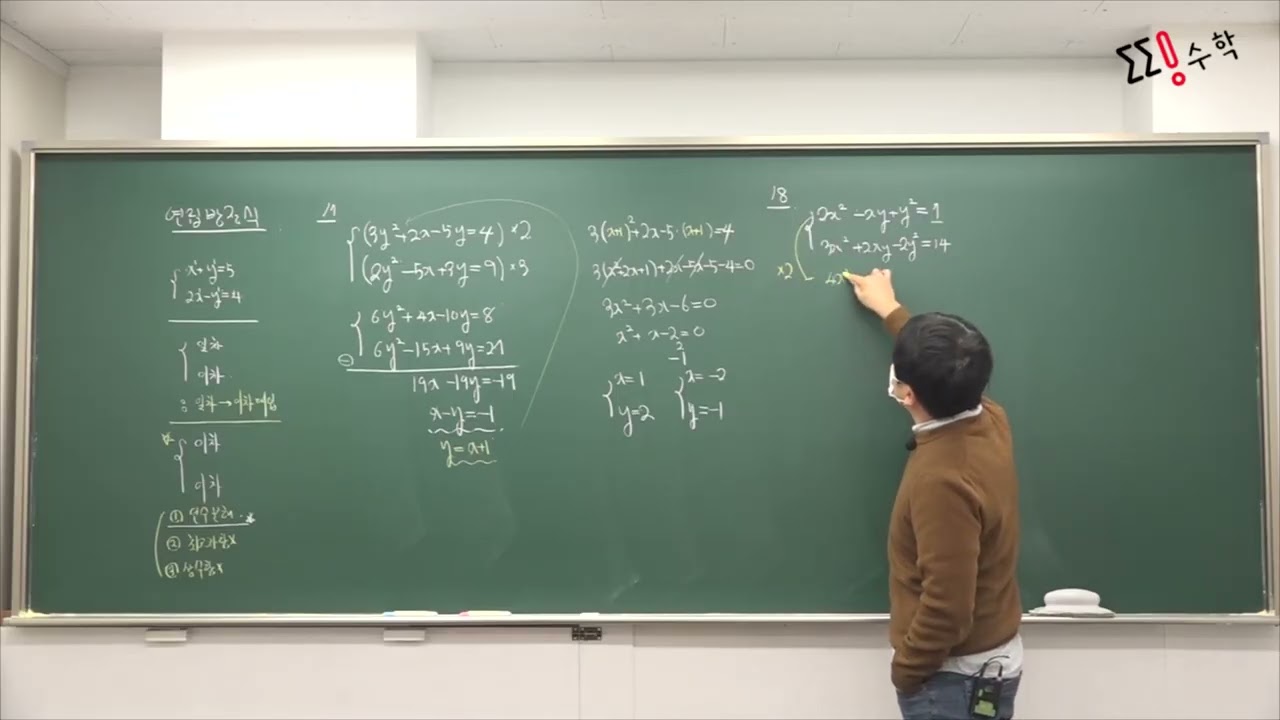 수학
연립방정식
x²+y²=5
2x²-y²=4
일차
이차
: 일차→이차 대입
이차
이차
①
② 최고차항x
③ 상수항x
17
(3y²+2x-5y=4)×2
(2y²-5x+3y=9)×3
6y²+4x-10y=8
6y²-15x+9y=27
19x-19y=-19
x-y=-1
y=x+1
3(x+1)²+2x-5·(x+1)=4
3(x²+2x+1)+2x-5x-5-4=0
3x²+3x-6=0
x²+x-2=0
2
-1
x=1
y=2
x=-2
y=-1
18
2x²-xy+y²=1
3x²+2xy-2y²=14
×2
4x